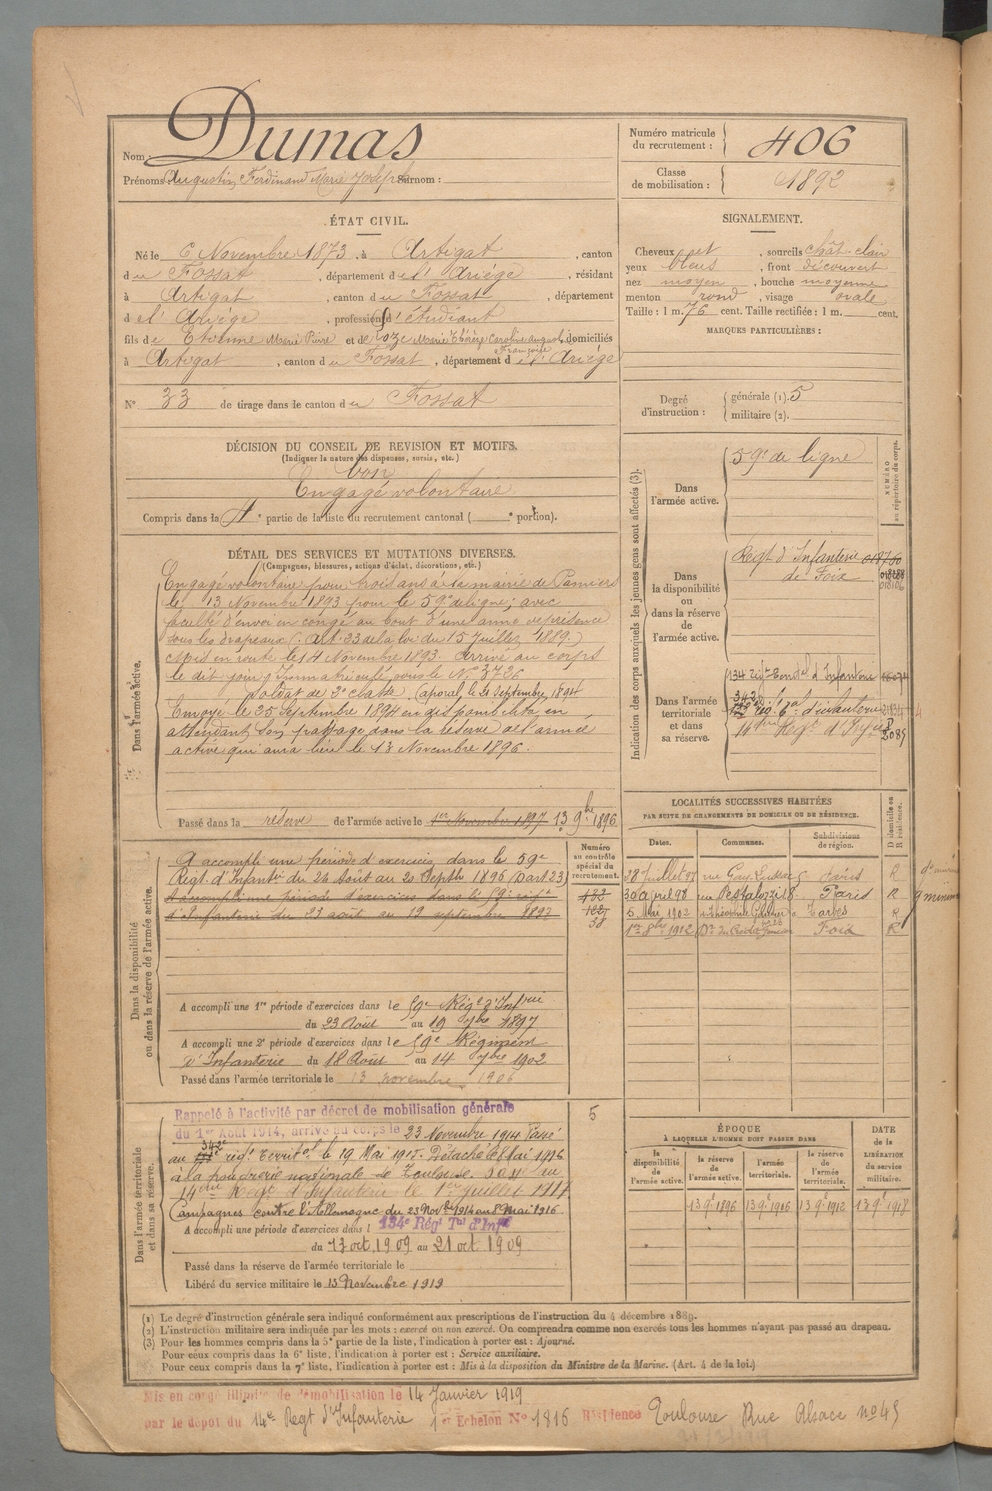 Nom : Dumas
Prénoms : Augustin Ferdinand Marie Joseph Surnom :
Numéro matricule du recrutement : 406
Classe de mobilisation : 1892
ÉTAT CIVIL.
Né le 6 Novembre 1873, à Artigat, canton
du Fossat, département de l'Ariège, résidant
à Artigat, canton du Fossat, département
de l'Ariège, profession d'étudiant
fils de Etienne Marie Pierre et de Marie Thérèse Caroline August. Françoise, domiciliés
à Artigat, canton du Fossat, département de l'Ariège
N° 33 de tirage dans le canton du Fossat
SIGNALEMENT.
Cheveux et, sourcils chât. clair
yeux bleus, front découvert
nez moyen, bouche moyenne
menton rond, visage ovale
Taille : 1 m. 76 cent. Taille rectifiée : 1 m. cent.
MARQUES PARTICULIÈRES :
Degré d'instruction : générale (1). 5
militaire (2).
DÉCISION DU CONSEIL DE REVISION ET MOTIFS.
(Indiquer la nature des dispenses, sursis, etc.)
bon
Engagé volontaire
Compris dans la 4e partie de la liste du recrutement cantonal ( e portion).
DÉTAIL DES SERVICES ET MUTATIONS DIVERSES.
(Campagnes, blessures, actions d'éclat, décorations, etc.)
Dans l'armée active.
Engagé volontaire pour trois ans à la mairie de Pamiers
le 13 Novembre 1893 pour le 59e de ligne; avec
faculté d'envoi en congé au bout d'une année de présence
sous les drapeaux (Art. 23 de la loi du 15 Juillet 1889.)
Mis en route le 14 Novembre 1893. Arrivé au corps
le dit jour, immatriculé sous le N° 3726
Soldat de 2e classe, Caporal, le 21 Septembre 1894
Envoyé le 25 Septembre 1894 en disponibilité en
attendant son passage dans la réserve de l'armée
active qui aura lieu le 13 Novembre 1896.
Passé dans la réserve de l'armée active le 1er Novembre 1897 13 9bre 1896
Indication des corps auxquels les jeunes gens sont affectés (3).
NUMÉRO au répertoire du corps.
Dans l'armée active.
59e de ligne
Dans la disponibilité ou dans la réserve de l'armée active.
Regt d'Infanterie de Foix
Dans l'armée territoriale et dans sa réserve.
134 régt Territal d'Infanterie
342 régt tal d'infanterie
14ème Regt d'Infie 2085
Dans la disponibilité ou dans la réserve de l'armée active.
A accompli une période d'exercices dans le 59e
Régt d'Infantie du 24 Août au 20 Septbre 1896 (Dart 23)
A accompli une période d'exercices dans le 59e régt
d'Infanterie du 23 août au 19 septembre 1897
Numéro au contrôle spécial du recrutement.
58
A accompli une 1re période d'exercices dans le 59e Régt d'Infrie
du 23 Août au 19 7bre 1897
A accompli une 2e période d'exercices dans le 59e Régiment
d'Infanterie du 18 Août au 14 7bre 1902
Passé dans l'armée territoriale le 13 novembre 1906
LOCALITÉS SUCCESSIVES HABITÉES
PAR SUITE DE CHANGEMENTS DE DOMICILE OU DE RÉSIDENCE.
Dates. Communes. Subdivisions de région. D domicile ou R résidence.
28 Juillet 97 rue Paris R
30 avril 98 rue Pestalozzi 8 Paris R
5 Mai 1902 r. Théophile Gautier Tarbes R
1er 8bre 1912 Foix R
Dans l'armée territoriale et dans sa réserve.
Rappelé à l'activité par décret de mobilisation générale
du 1er Août 1914, arrivé au corps le 23 Novembre 1914 Passé
au 342e régt Territal le 19 Mai 1915. Détaché le 8 Mai 1916
à la poudrerie nationale de Toulouse. Passé au
14ème Régt d'Infanterie le 1er juillet 1917
Campagnes contre l'Allemagne du 23 Novbre 1914 au 8 Mai 1916
5
A accompli une période d'exercices dans l 134e Régt Tal d'Infie
du 13 oct. 1909 au 21 oct 1909
Passé dans la réserve de l'armée territoriale le
Libéré du service militaire le 13 Novembre 1919
ÉPOQUE À LAQUELLE L'HOMME DOIT PASSER DANS
la disponibilité de l'armée active. la réserve de l'armée active. l'armée territoriale. la réserve de l'armée territoriale.
DATE de la LIBÉRATION du service militaire.
13 9e 1896 13 9e 1906 13 9e 1912 13 9e 1918
(1) Le degré d'instruction générale sera indiqué conformément aux prescriptions de l'instruction du 4 décembre 1889.
(2) L'instruction militaire sera indiquée par les mots : exercé ou non exercé. On comprendra comme non exercés tous les hommes n'ayant pas passé au drapeau.
(3) Pour les hommes compris dans la 5e partie de la liste, l'indication à porter est : Ajourné.
Pour ceux compris dans la 6e liste, l'indication à porter est : Service auxiliaire.
Pour ceux compris dans la 7e liste, l'indication à porter est : Mis à la disposition du Ministre de la Marine. (Art. 4 de la loi.)
Mis en congé illimité de démobilisation le 14 Janvier 1919
par le dépôt du 14e Regt d'Infanterie 1er Echelon N° 1816 Résidence Toulouse Rue Alsace n° 45